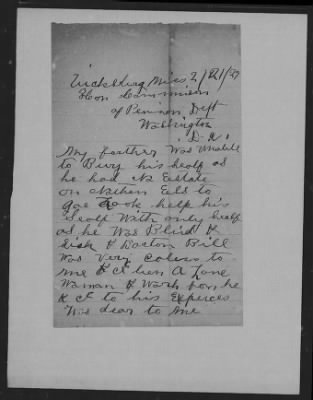 Vicksburg Miss 2/21/27
Hon Commison
of Penison Dept
Washington
D. C.
My farther Was unable
to Bury his Sealf as
he had No Estate
on Nothen Els to
his
Sealf With only healf
as he Was Blind &
Sick & Docton Bill
Was Very
me & I ben A Lone
Woman & Wash for he
& I to his Expences
Was dear to me